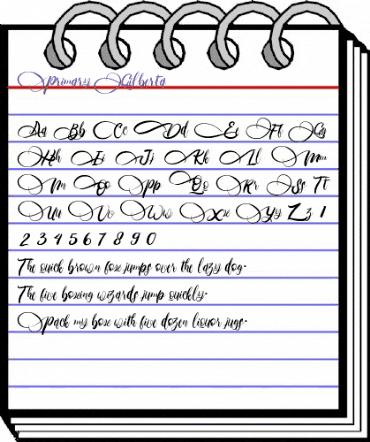 Primary Gilberta
Aa Bb Cc Dd Ee Ff Gg
Hh Ii Jj Kk Ll Mm
Nn Oo Pp Qq Rr Ss Tt
Uu Vv Ww Xx Yy Zz 1
2 3 4 5 6 7 8 9 0
The quick brown fox jumps over the lazy dog.
The five boxing wizards jump quickly.
Pack my box with five dozen liquor jugs.